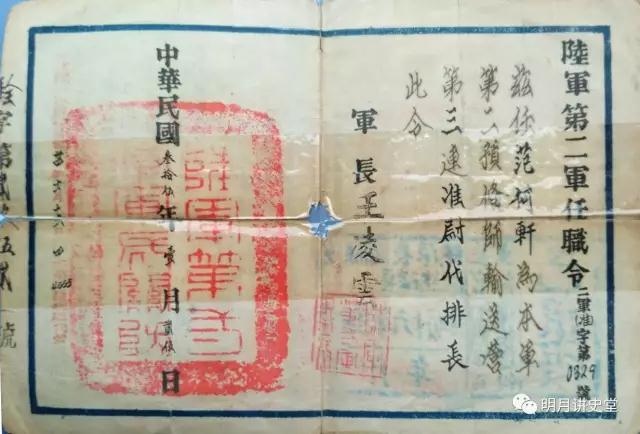 陸軍第二軍任職令
二軍(准)字第0329號
茲任范柯軒為本軍
第二預備師輸送營
第三連准尉代排長
此令
軍長王凌雲
中華民國叁拾伍年壹月貳伍日
明月讲史堂